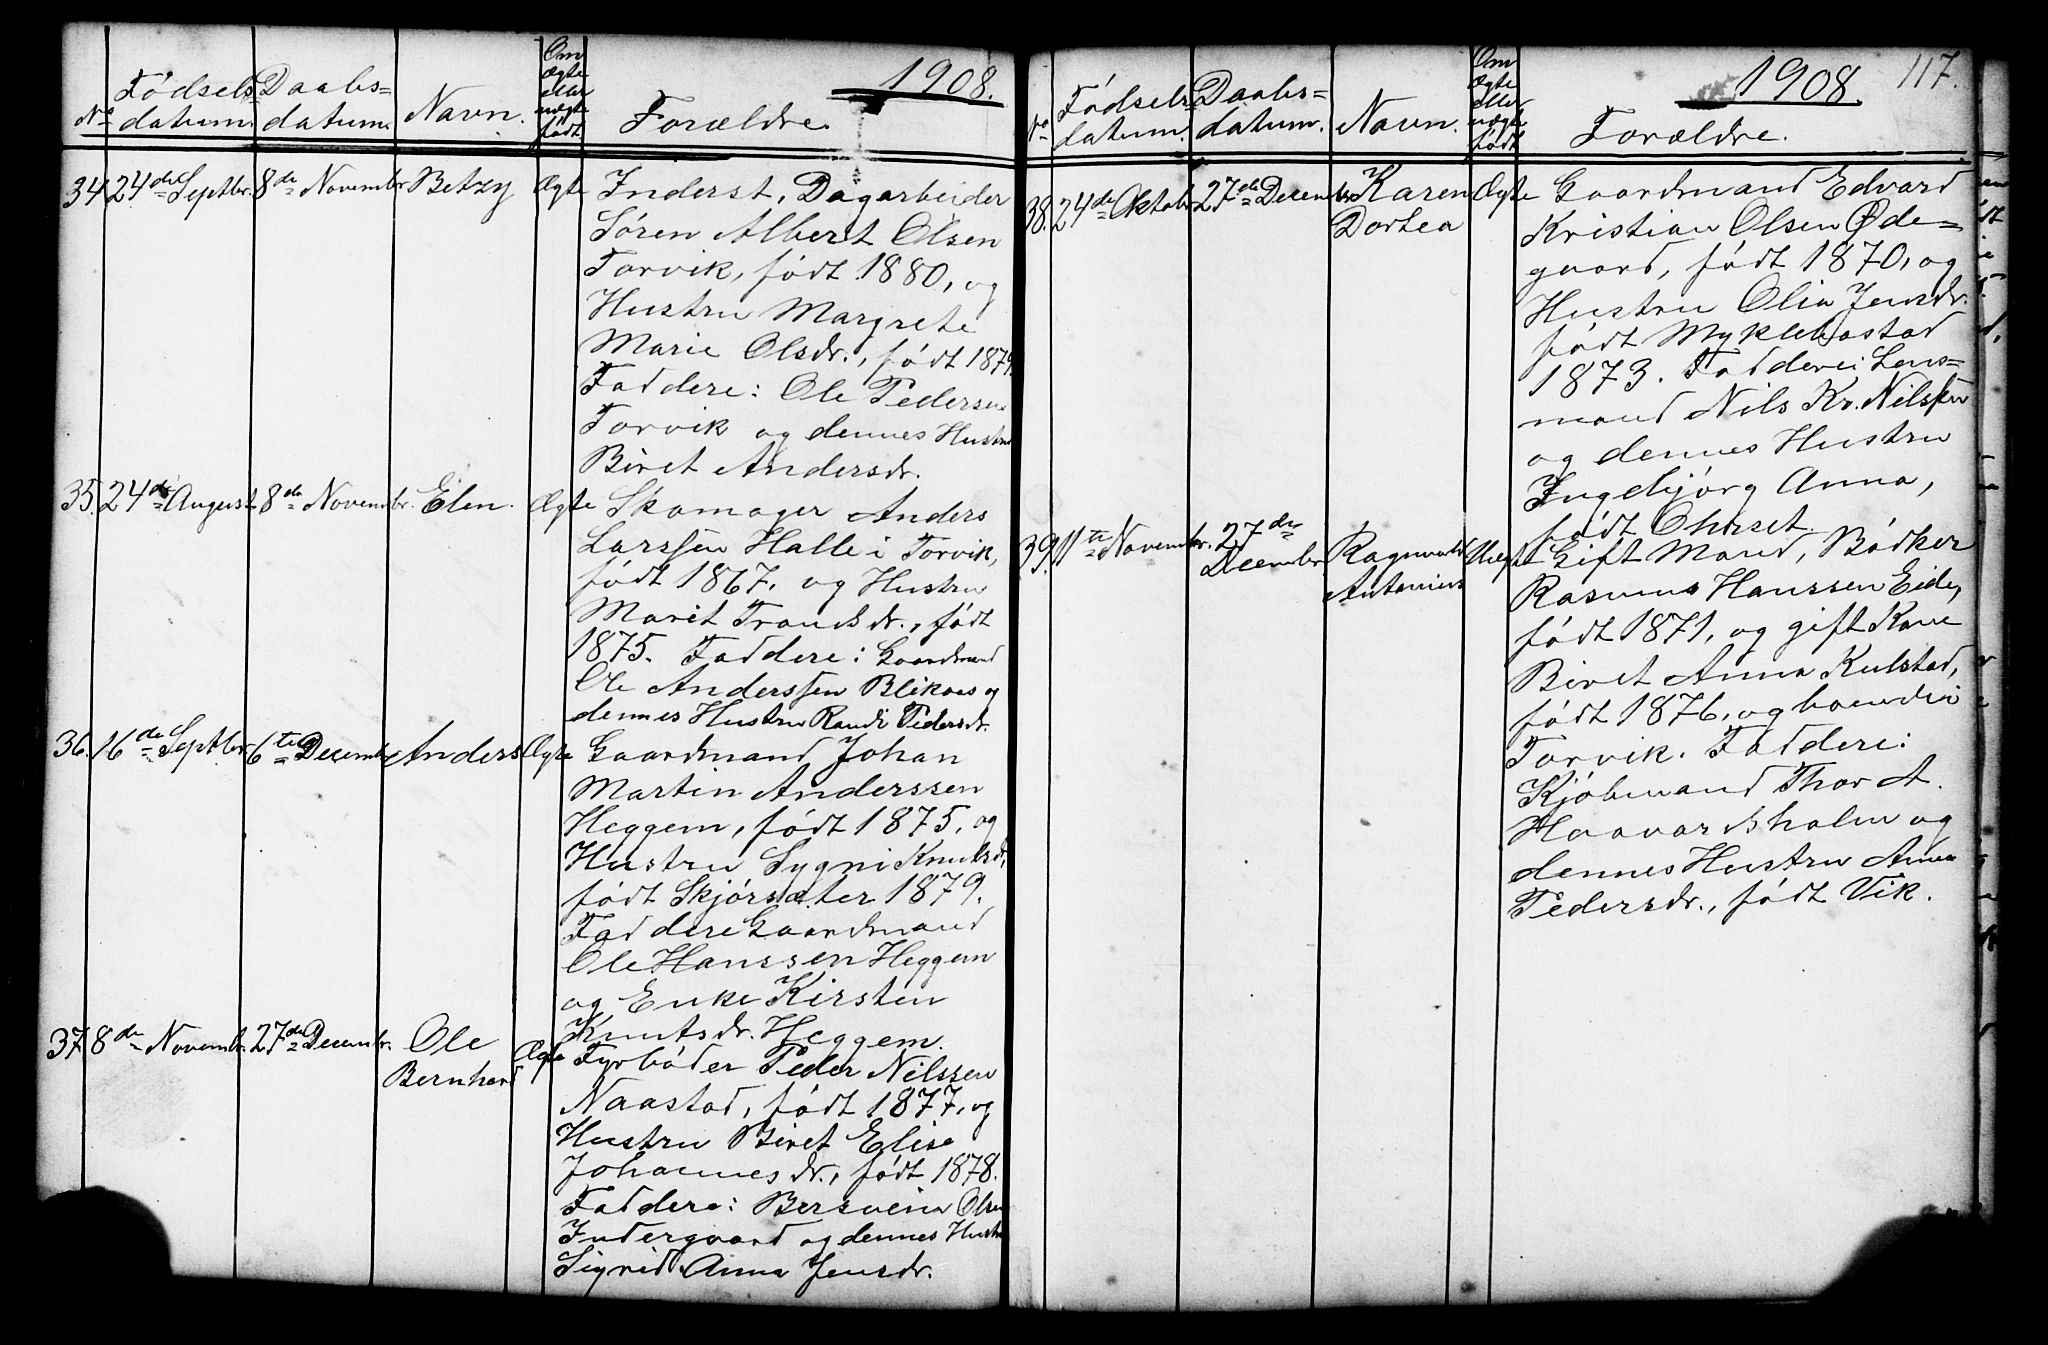 1908.
No
Fødsels-
datum.
Daabs=
datum.
Navn.
Om
Ægte
eller
uægte
født
Forældre.
34. 24de Septbr. 8de Novembr. Betzy Ægte Inderst, Dagarbeider
Søren Albert Olsen
Torvik, født 1880, og
Hustru Margrete
Marie Olsdr., født 1879.
Faddere: Ole Pedersen
Torvik og dennes Hustru
Beret Andersdr.
35. 24de August 8de Novembr. Elen. Ægte Skomager Anders
Larssen Halle i Torvik,
født 1867, og Hustru
Marit Trondsdr., født
1875. Faddere: Gaardmand
Ole Anderssen Blikaas og
dennes Hustru Randi Pedersdr.
36. 16de Septbr. 6te Decembr. Anders Ægte Gaardmand Johan
Martin Anderssen
Heggem, født 1875, og
Hustru Sygni Knutsd.,
født Skjørsæter 1879.
Faddere Gaardmand
Ole Hanssen Heggem
og Enke Kirsten
Knutsdr. Heggem.
37. 8de Novembr. 27de Decembr. Ole Ægte Fyrbøder Peder Nilssen
Bernhard
Naastad, født 1877, og
Hustru Beret Elise
Johannesdr., født 1878.
Faddere: Bersvein Olsen
Indergaard og dennes Hustru
Sigrid Anna Jensdr.
1908. 117.
No
Fødsels-
datum.
Daabs=
datum.
Navn.
Om
Ægte
eller
uægte
født
Forældre.
38. 24de Oktobr. 27de Decembr. Karen Ægte Gaardmand Edvard
Dortea
Kristian Olsen Øde=
gaard, født 1870, og
Hustru Olia Jensdr.
født Myklebostad
1873. Faddere: Lens=
mand Nils Kr. Nilssen
og dennes Hustru
Ingebjørg Anna,
født Ohuset.
39. 11te Novembr. 27de Decembr. Ragnvald Uægte Gift Mand, Bødker
Antonius
Rasmus Hanssen Eide,
født 1871, og gift Kone
Beret Anna Kulstad,
født 1876, og boende i
Torvik. Faddere:
Kjøbmand Thor A.
Haavardsholm og
dennes Hustru Anna
Pedersdr., født Vik.